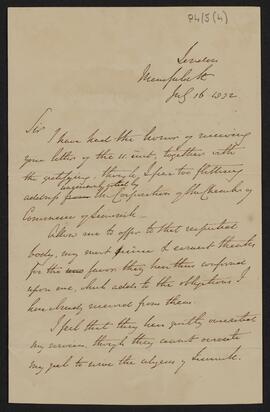 P4/5(4)
London
July 16 1832
Sir
I have had the honor of receiving
your letter of the 11 inst, together with
the gratifying, though, I fear too flattering
address the Corporation of the Chamber of
Commerce of Limerick
Allow me to offer to that respected
body, my most sincere & earnest thanks
for the favor they have thus conferred
upon me, which adds to the obligations I
have already received from them.
I feel that they have greatly overrated
my services, though they cannot overrate
my zeal to serve the citizens of Limerick.